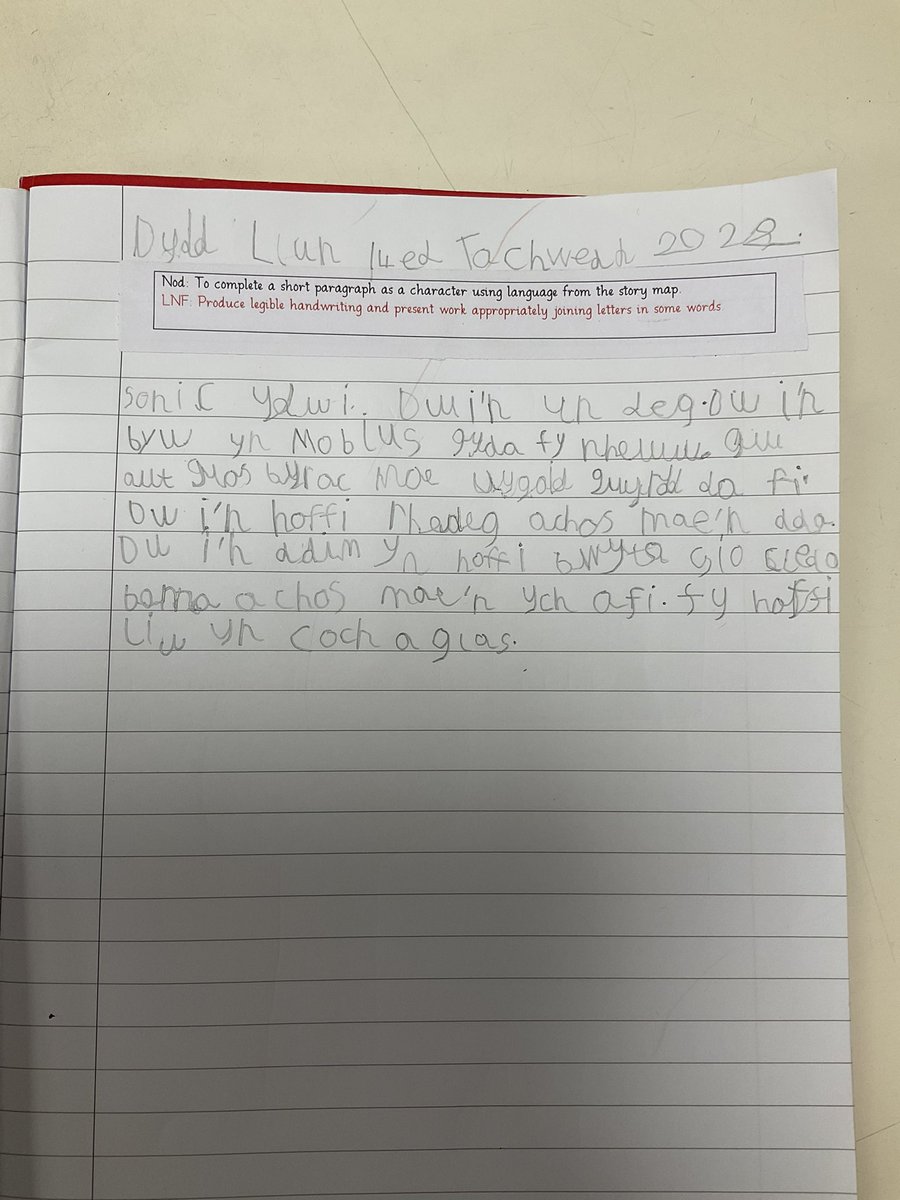 Dydd Llun 14ed Tachwedd 2022.
Nod: To complete a short paragraph as a character using language from the story map.
LNF: Produce legible handwriting and present work appropriately joining letters in some words
sonic ydwi. Dwi'n yn deg. Dw i'n
byw yn Moblus gyda fy
gwos byrac Mae llygaid gwyrdd da fi.
Dw i'n hoffi Rhedeg achos mae'n dda.
Dw i'n ddim yn hoffi bwyta
achos mae'n ych afi. fy hoffi
Liw yn coch a glas.